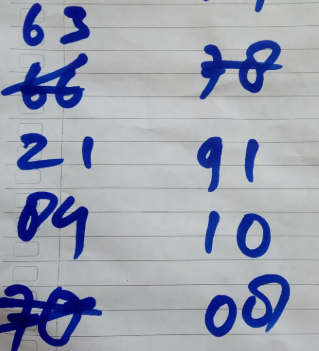 63
66 78
21 91
84 10
70 08